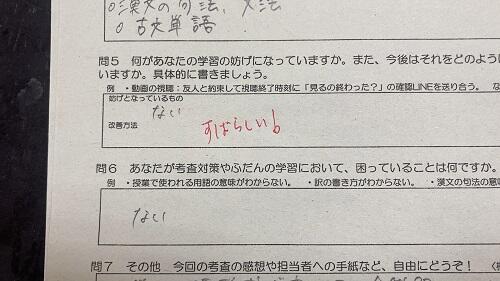 ○漢文の句法、文法
○古文単語
問5 何があなたの学習の妨げになっていますか。また、今後はそれをどのように
いますか。具体的に書きましょう。
例 ・動画の視聴：友人と約束して視聴終了時刻に「見るの終わった？」の確認LINEを送り合う。 な
妨げとなっているもの
ない
改善方法
すばらしい！
問6 あなたが考査対策やふだんの学習において、困っていることは何ですか。
例 ・授業で使われる用語の意味がわからない。 ・訳の書き方がわからない。 ・漢文の句法の意味
ない
問7 その他 今回の考査の感想や担当者への手紙など、自由にどうぞ！